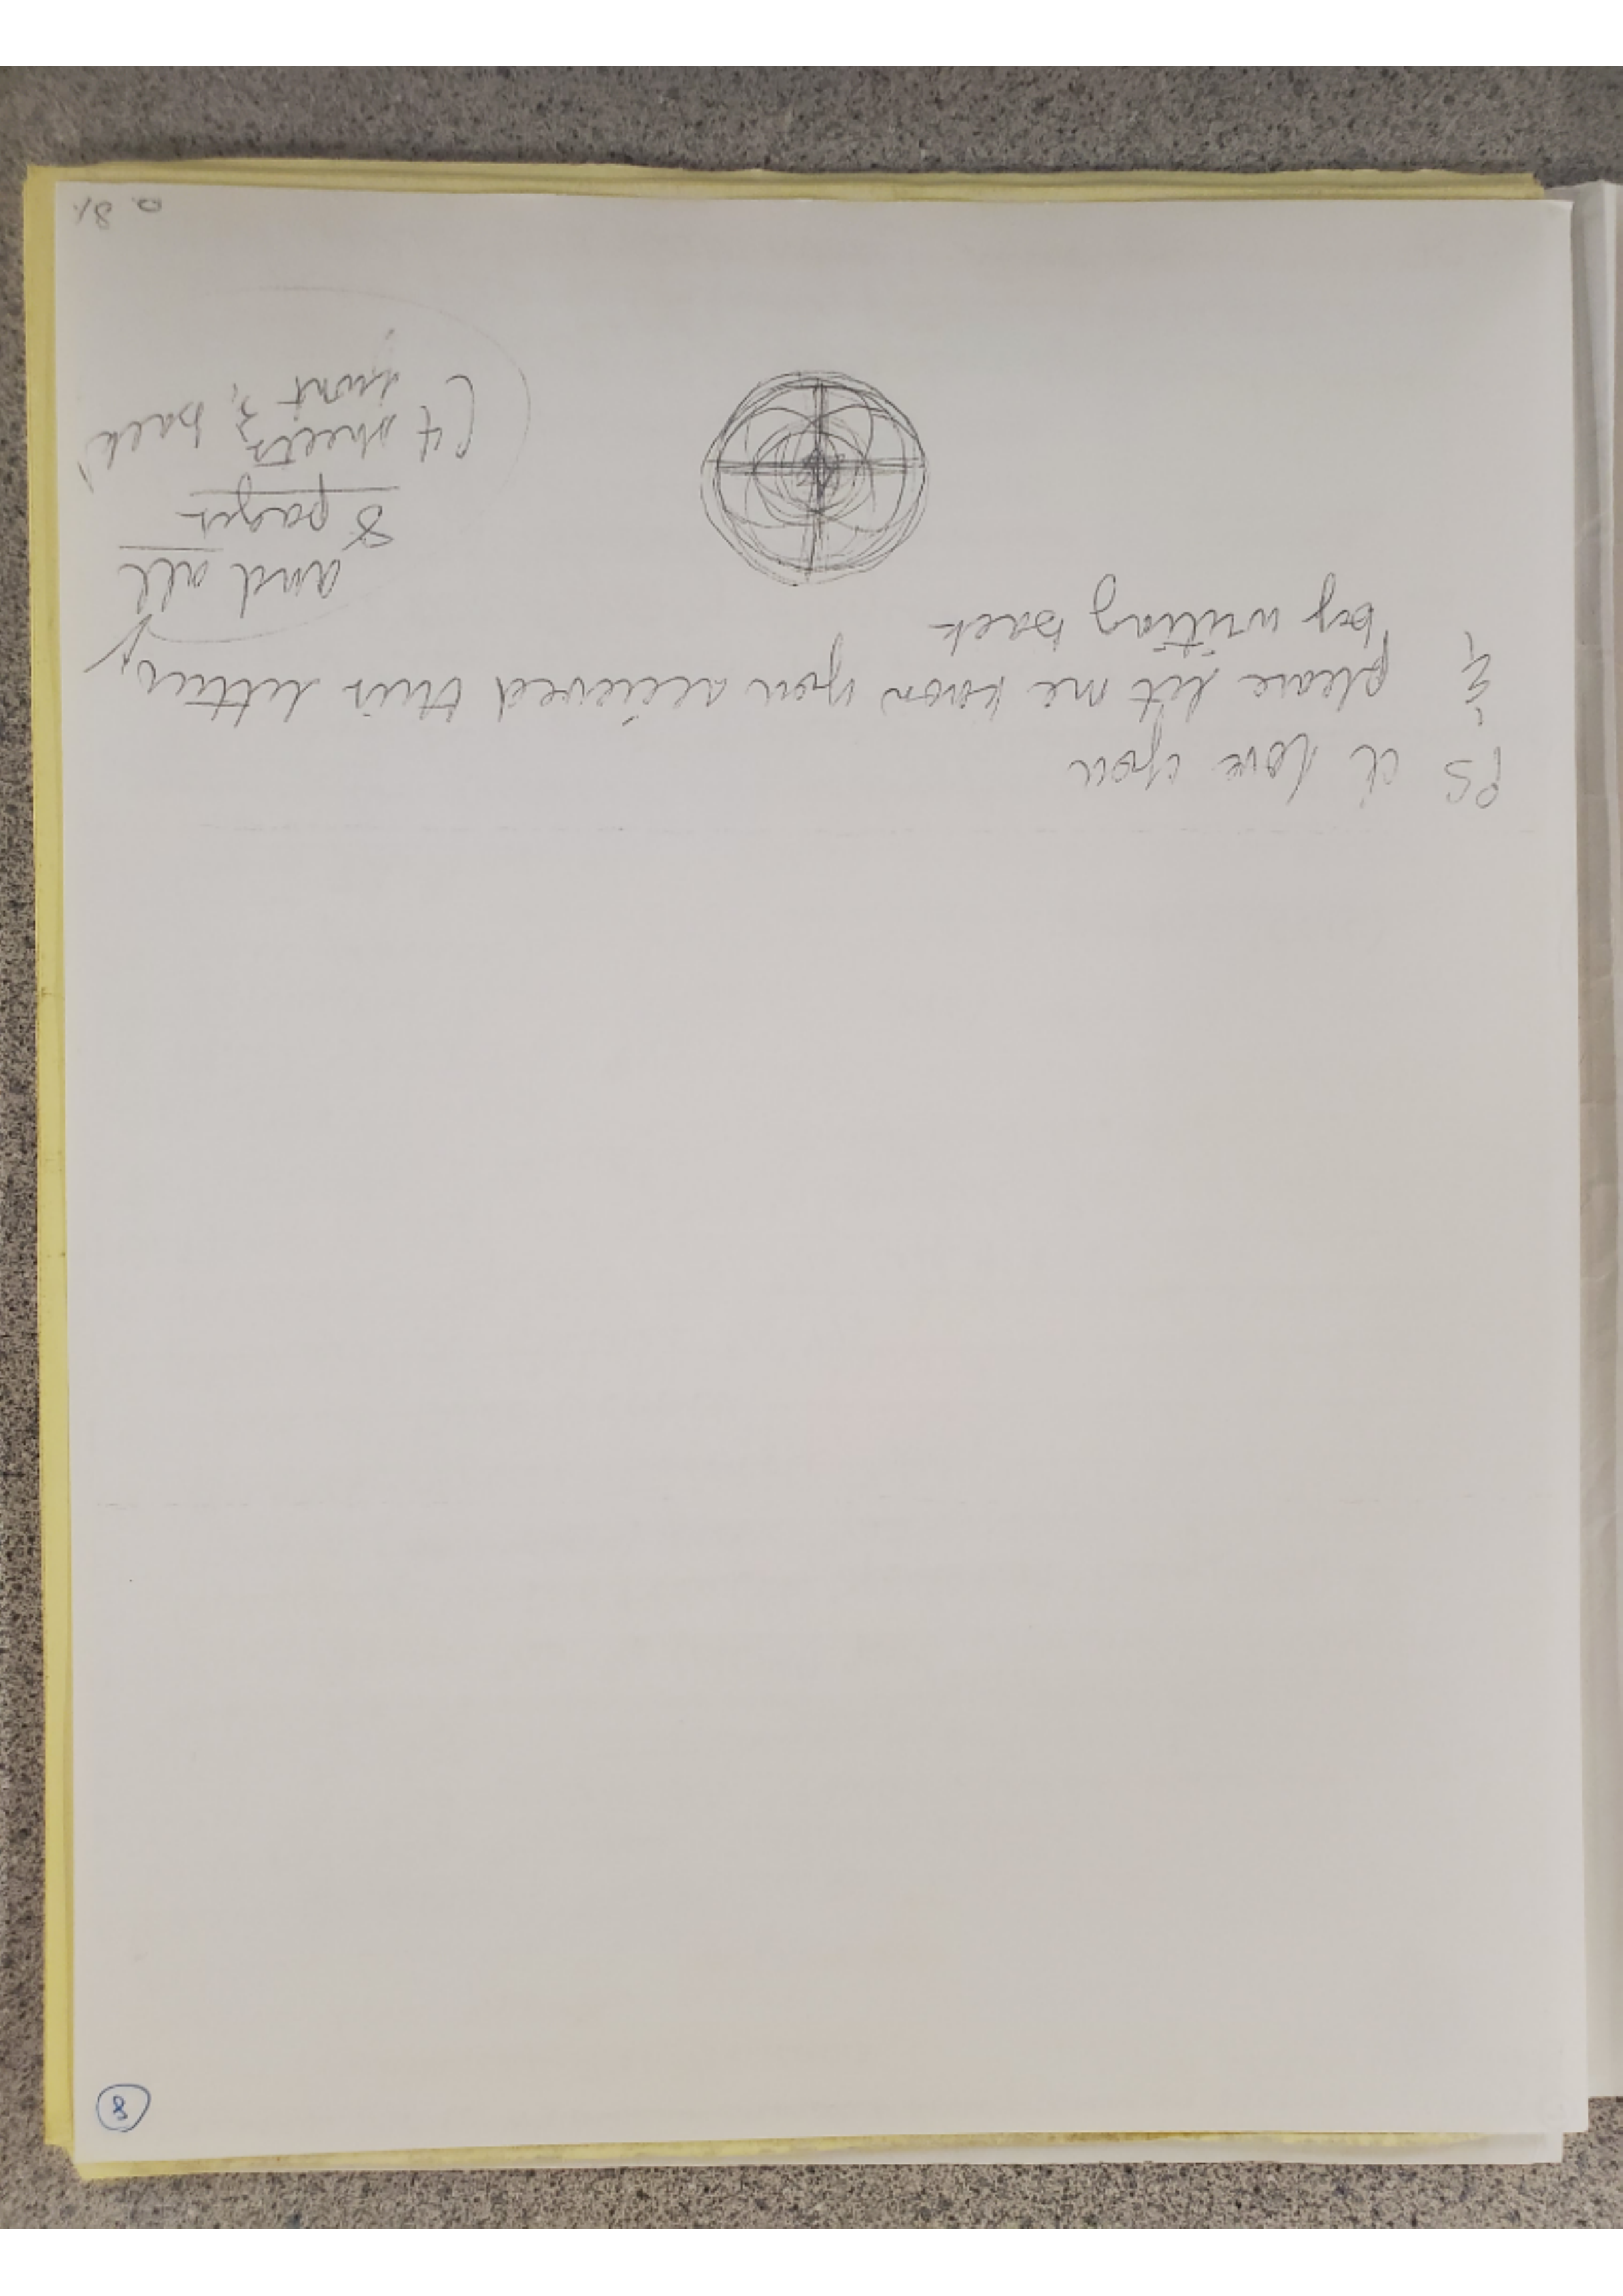 PS I love you
& please let me know you recieved this letter,
by writing back
and all
8 pages
(4 sheets
front & back)
p. 8
8